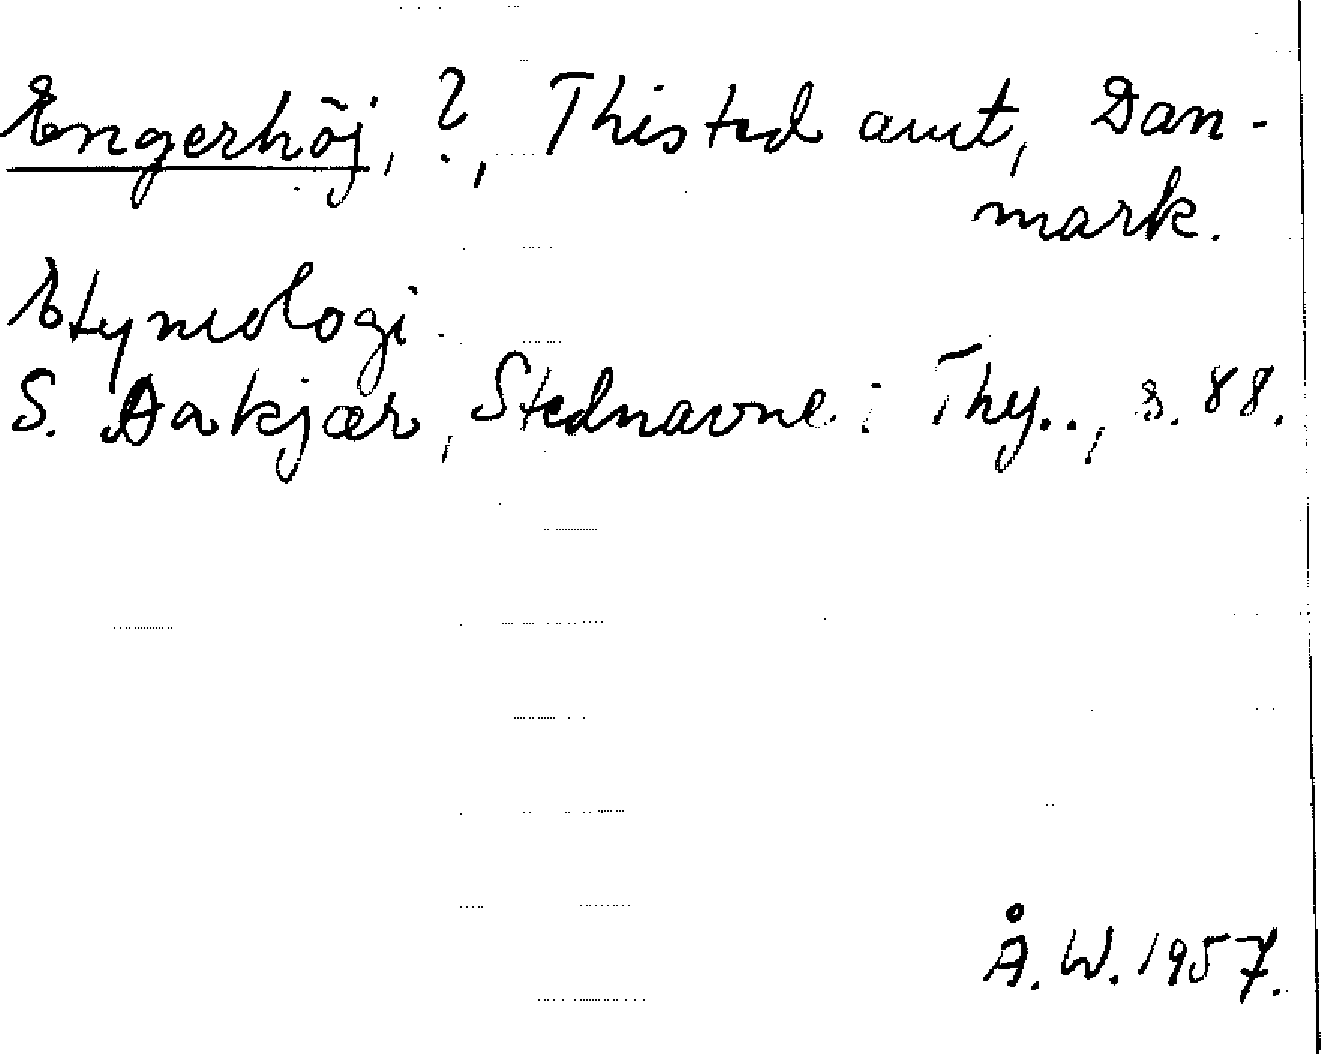 Engerhöj, ?, Thisted amt, Dan-
mark.
Etymologi.
S. Aakjær, Stednavne i Thy.., s. 88.
Å. W. 1957.